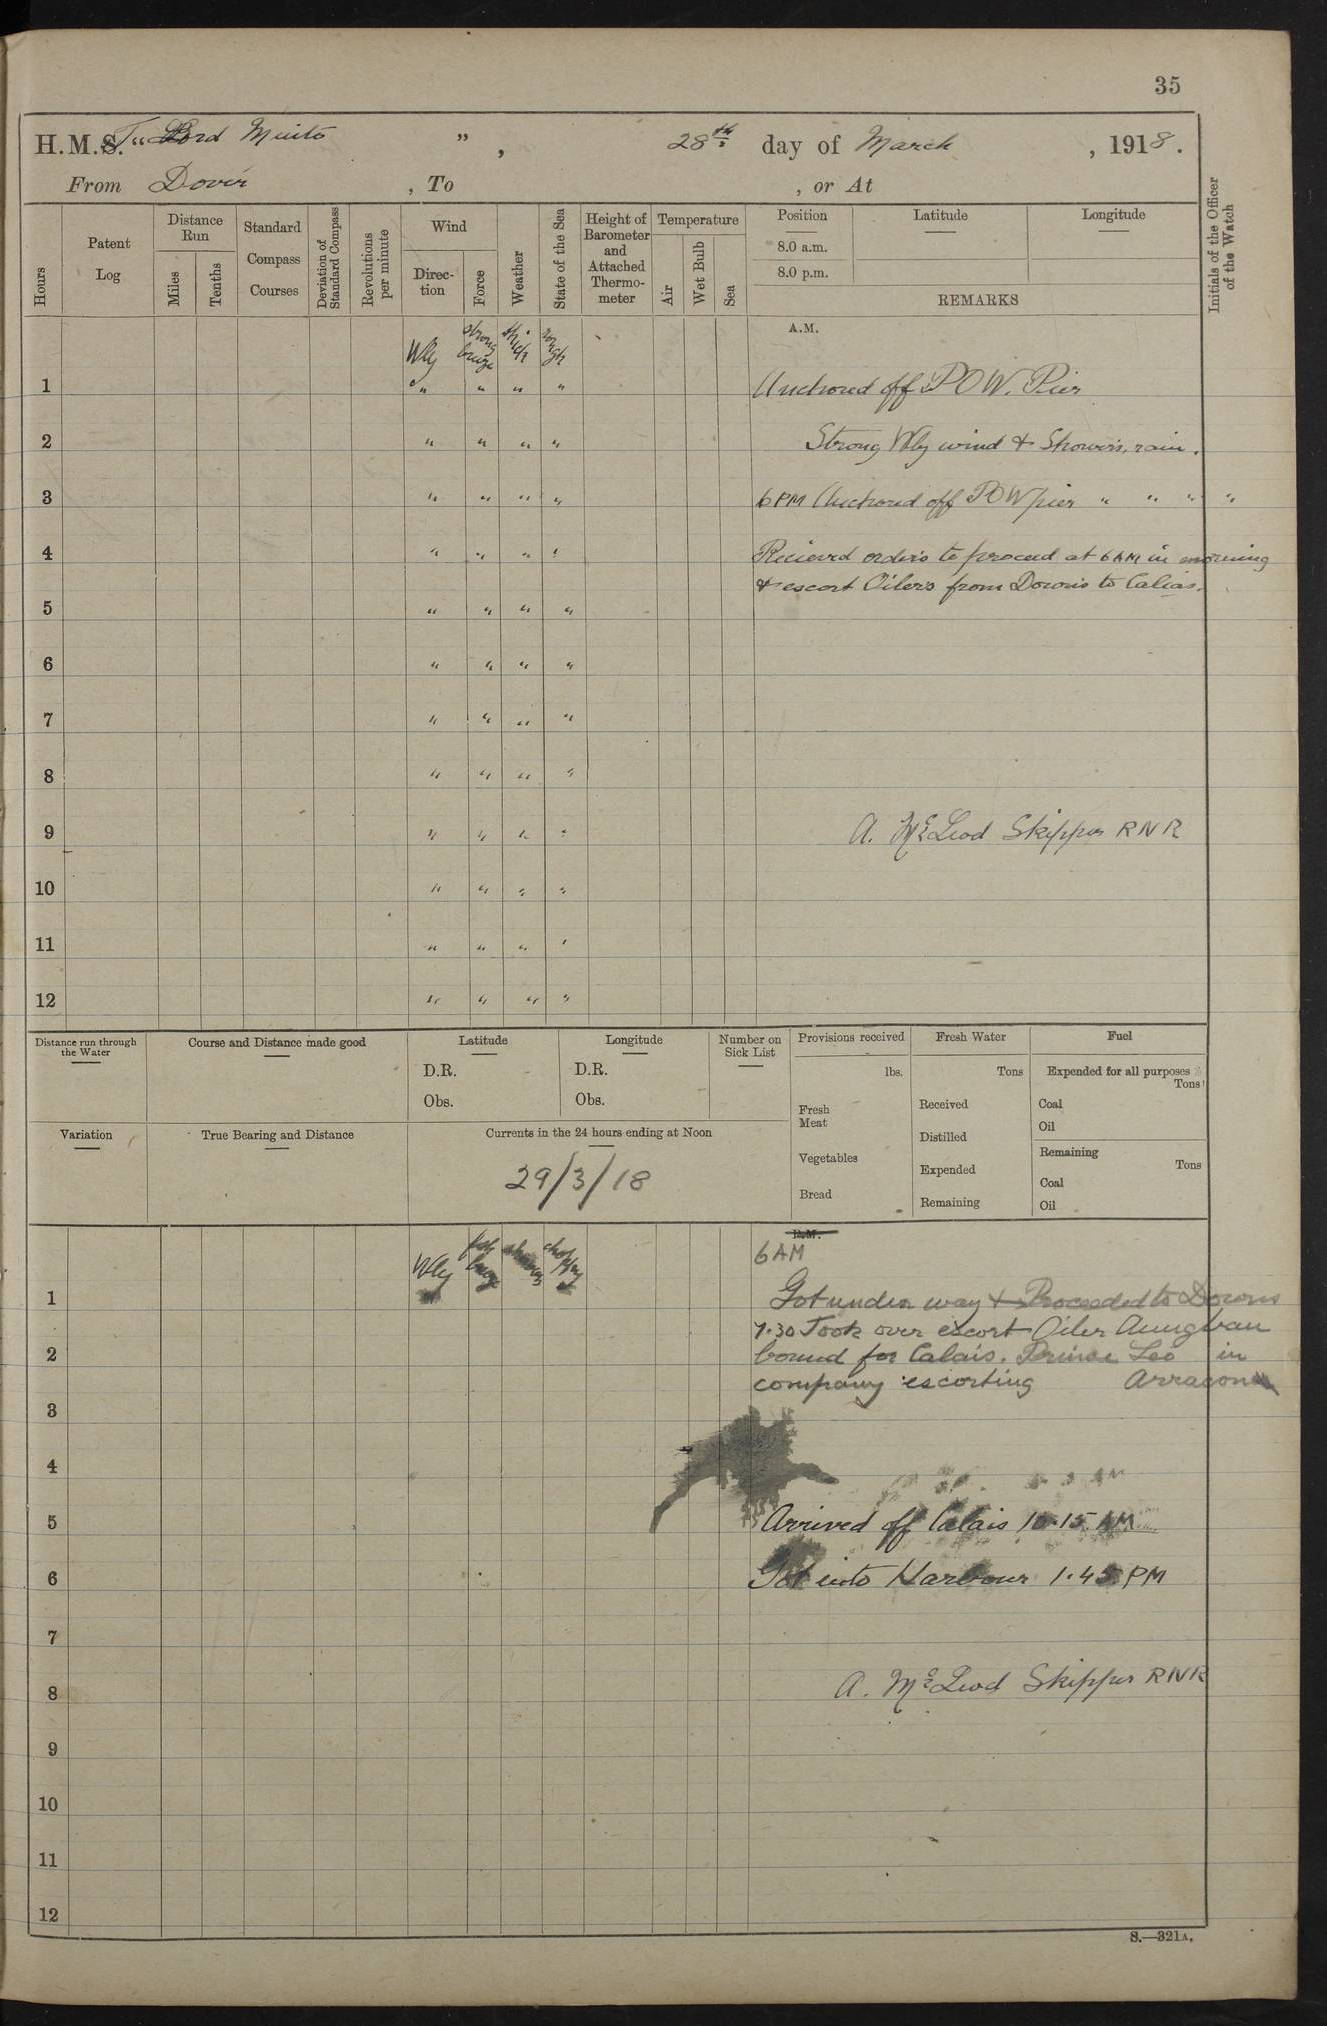 35
H.M.S. T "Lord Minto ", 28th day of March, 1918.
From Dover, To , or At
Hours
Patent Log
Distance Run
Miles
Tenths
Standard Compass Courses
Deviation of Standard Compass
Revolutions per minute
Wind
Direc-tion
Force
Weather
State of the Sea
Height of Barometer and Attached Thermo-meter
Temperature
Air
Wet Bulb
Sea
Position
8.0 a.m.
8.0 p.m.
Latitude
Longitude
REMARKS
Initials of the Officer of the Watch
A.M.
Wly strong breeze thick rough
1 " " " " Anchored off POW. Pier
2 " " " " Strong Wly wind & Showers, rain.
3 " " " " 6 PM Anchored off POW pier " " " "
4 " " " " Recieved orders to proceed at 6 AM in morning
& escort Oilers from Downs to Calias.
5 " " " "
6 " " " "
7 " " " "
8 " " " "
9 " " " " A. McLeod Skipper RNR
10 " " " "
11 " " " "
12 " " " "
Distance run through the Water
Course and Distance made good
Latitude
D.R.
Obs.
Longitude
D.R.
Obs.
Number on Sick List
Provisions received
lbs.
Fresh Meat
Vegetables
Bread
Fresh Water
Tons
Received
Distilled
Expended
Remaining
Fuel
Expended for all purposes
Tons
Coal
Oil
Remaining
Tons
Coal
Oil
Variation
True Bearing and Distance
Currents in the 24 hours ending at Noon
29/3/18
P.M.
Wly fsh breeze choppy 6 AM
1 Got under way & Proceeded to Downs
7.30 Took over escort Oiler Aungban
2 bound for Calais. Prince Leo in
company escorting
3
4
5 Arrived off Calais 10.15 AM
6 Got into Harbour 1.45 PM
7
8 A. McLeod Skipper RNR
9
10
11
12
S.—321A.